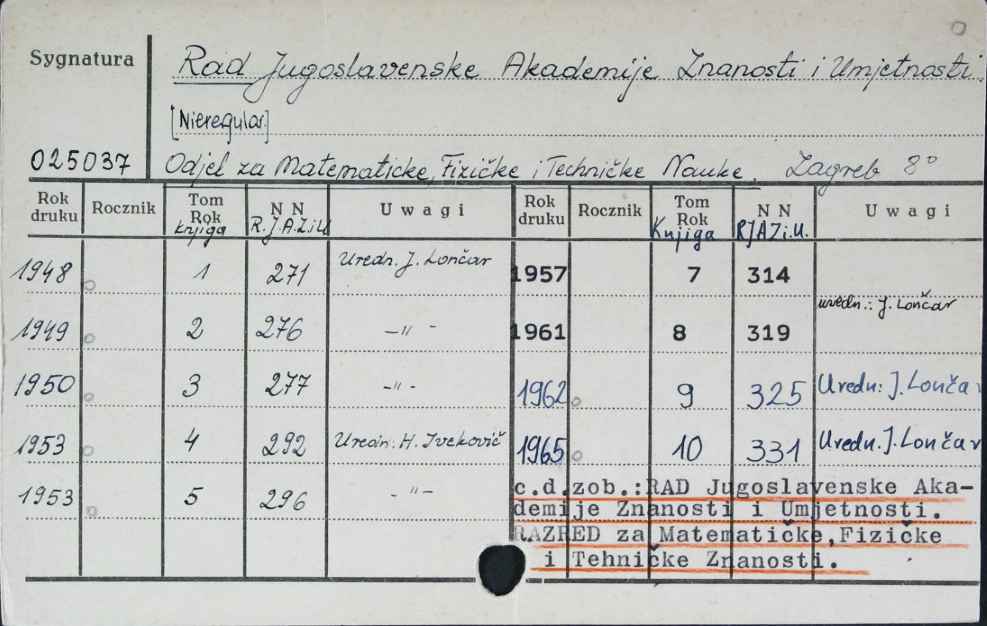 Sygnatura
Rad Jugoslavenske Akademije Znanosti i Umjetnosti.
[Nieregular.]
025037
Odjel za Matematicke, Fizičke i Techničke Nauke. Zagreb 8°
Rok druku Rocznik Tom Rok knjiga N N R.J.A.Z.i U Uwagi Rok druku Rocznik Tom Rok Knjiga N N RJAZi.U. Uwagi
1948 1 271 Uredn. J. Lončar 1957 7 314
1949 2 276 —"— 1961 8 319 uredn.: J. Lončar
1950 3 277 —"— 1962 9 325 Uredn: J. Lončar
1953 4 292 Uredn. H. Iveković 1965 10 331 Uredn. J. Lončar
1953 5 296 —"—
c.d.zob.:RAD Jugoslavenske Aka-
demije Znanosti i Umjetnosti.
RAZRED za Matematičke,Fizičke
i Tehničke Znanosti.